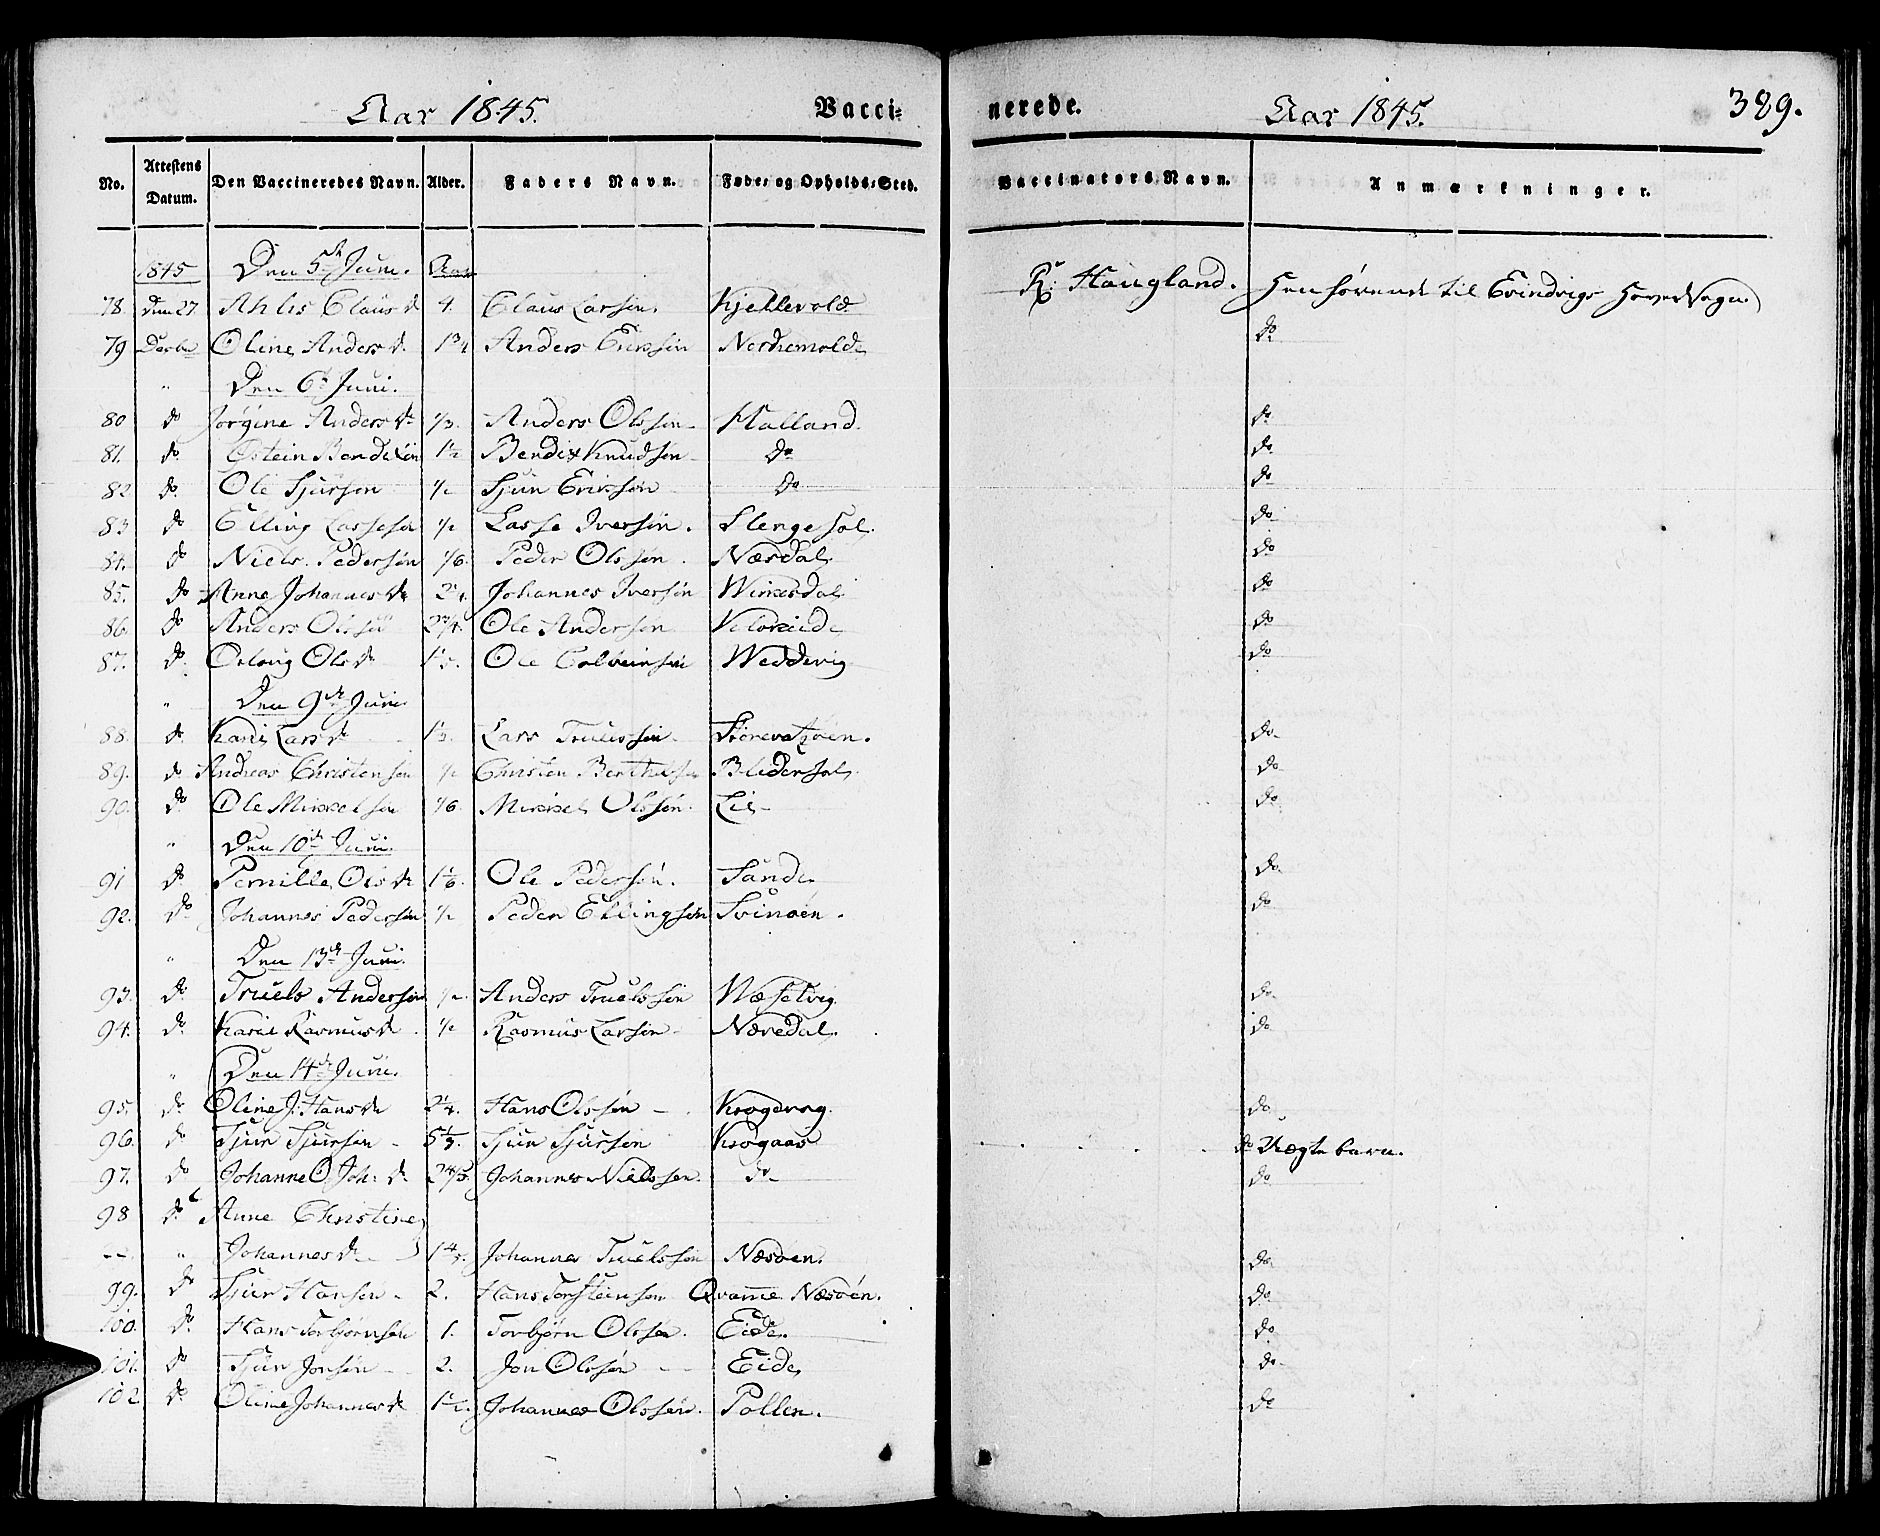 Aar 1845. Vaccinerede. Aar 1845. 389.
No. Attestens Datum. Den Vaccineredes Navn. Alder. Faders Navn. Føde- og Opholds-Sted. Vaccinators Navn. Anmærkninger.
1845 Den 5te Juni. Aar
78. Den 27. Ahlis Clausd. 4. Claus Larsøn. Kjellevold R: Haugland. Henhørende til Evindvigs Hovedsogn.
79 Derbe Oline Andersd. 1 3/4 Anders Erikssøn Nordremolde do
" Den 6te Juni.
80 do Jørgine Andersd. 1/3. Anders Olssøn Halland. do
81. do Østein Bendixsøn 1 1/2 Bendix Knudsøn do do
82 do Ole Sjursøn 1/2 Sjur Erikssøn do do
83 do Elling Lassesøn 1/2 Lasse Iversøn. Slengesol. do
84. do Niels Pedersøn 1/6. Peder Olssøn. Næsdal do
85. do Anne Johannesd. 2 1/4. Johannes Iversøn Wirkesdal do
86. do Anders Olssøn 2 3/4. Ole Andersøn do
87. do Olsd. 1 1/5. Ole Weddevig do
" Den 9de Juni.
88. do Kari Larsd. 1/3. Lars Truelssøn Størevatzøen. do
89. do Andreas Christensøn 1/2 Christen Berthelsøn do
90. do Ole Mikkelsøn 1/6. Mikkel Olssøn. Lie do
" Den 10de Juni.
91 do Pernille Olsd. 1 1/6. Ole Pedersøn. Sande do
92. do Johannes Pedersøn 1/2 Peder Ellingsøn Svinøen. do
" Den 13de Juni.
93. do Truels Andersøn 1/2. Anders Truelssøn Wæsetvig do
94. do Kari Rasmusd. 1/2 Rasmus Larsøn Nævedal. do
" Den 14de Juni.
95. do Oline J: Hansd. 2 1/4. Hans Olssøn do
96. do Sjur Sjursøn 5 1/3. Sjur Sjursøn Krogaas do Uægte barn.
97. do Johanne O Joh: d. 2 4/5. Johannes Nielssen. do do
98 do Anne Christine
" Johannesd. 1 4/5. Johannes Truelssøn Næsøen. do
99. do Sjur Hansøn 2. Hans Torsteinsøn Qvamme Næsøen. do
100. do Hans Torbjørnsøn 1. Torbjørn Olssøn. Eide. do
101. do Sjur Jonsøn 2. Jon Olssøn Eide do
102 do Oline Johannesd. 1 1/2. Johannes Olssøn. Pollen. do